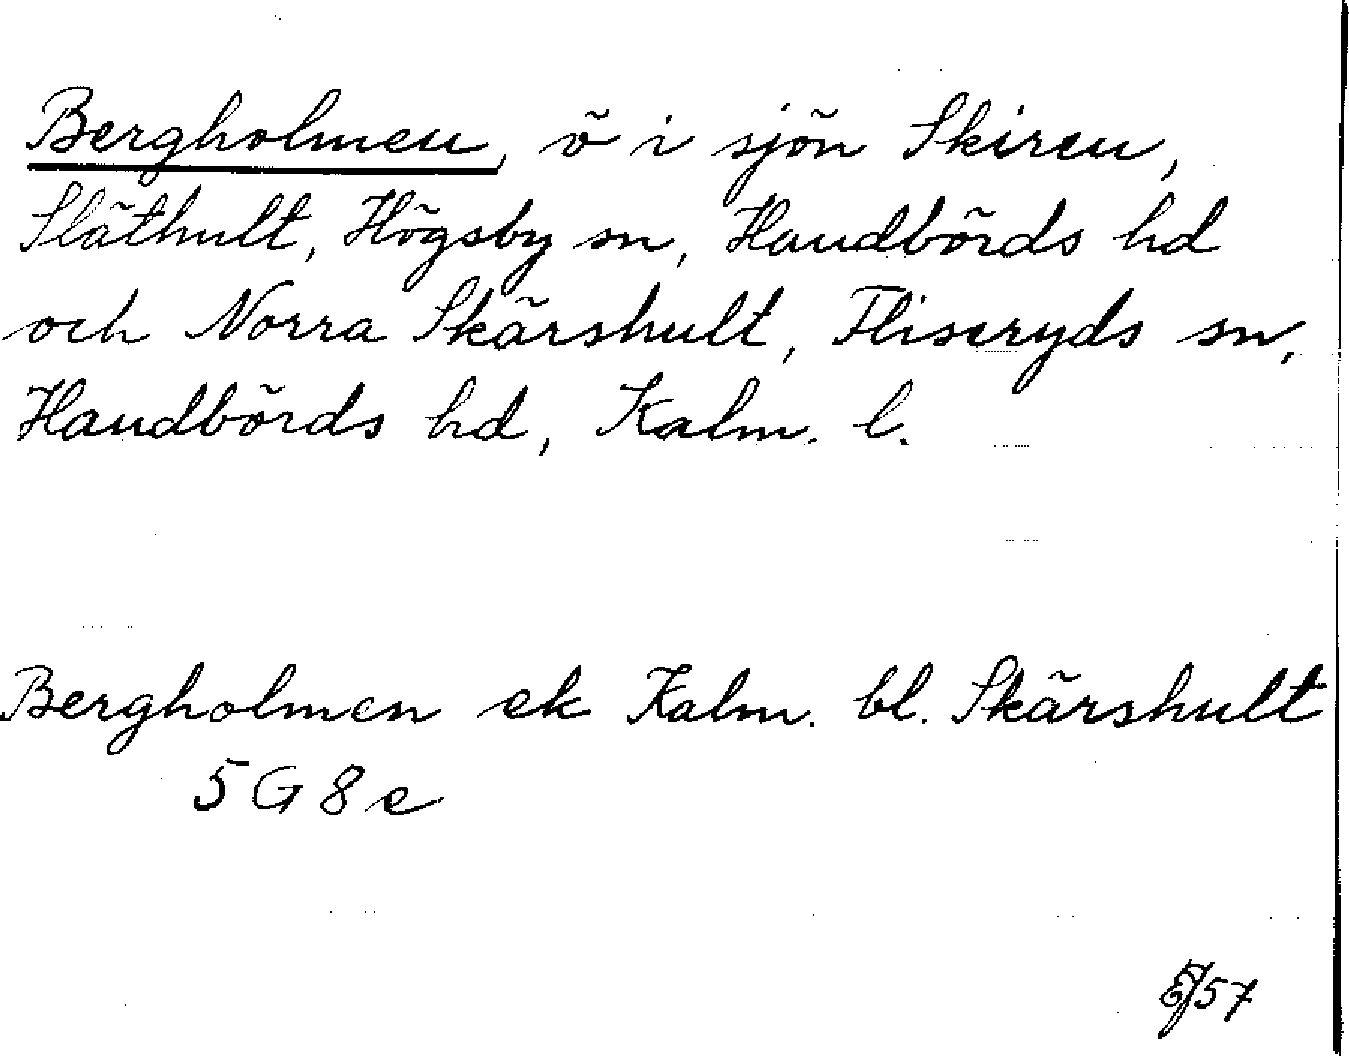 Bergholmen, ö i sjön Skiren,
Släthult, Högsby sn, Handbörds hd
och Norra Skärshult, Fliseryds sn,
Handbörds hd, Kalm. l.
Bergholmen ek Kalm. bl. Skärshult
5G8e
57